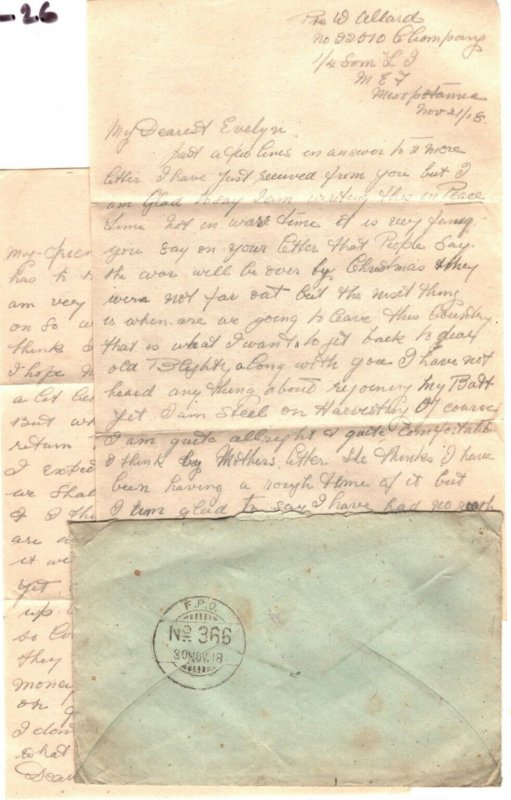 -.26
Pte W Allard
No 22010 C Company
1/4 Som L I
M E F
Mesopotamia
Nov 21/18.
My Dearest Evelyn.
Just a few lines in answer to 2 more
letter I have just received from you but I
am Glad to say I am writing this in Peace
time not in war time it is very funny
you say on your letter that People say
the war will be over by Christmas & they
were not far out but the next thing
is when are we going to leave this Country
that is what I want to get back to dear
old Blighty along with you I have not
heard any thing about rejoining my Batt
yet I am Steel on Harvesting of coarse
I am quite allright & quite Comfortable
I think by Mothers letter She thinks I have
been having a rough time of it but
I am glad to say I have had no rough
has to
am very
on so w
thinks
I hope
a lot
But wh
return
I expe
we Shal
I I tho
are a
it wi
yet
up
so Co
they
money
on
I don
what
Dear
F.P.O.
No 366
30 NOV. 18